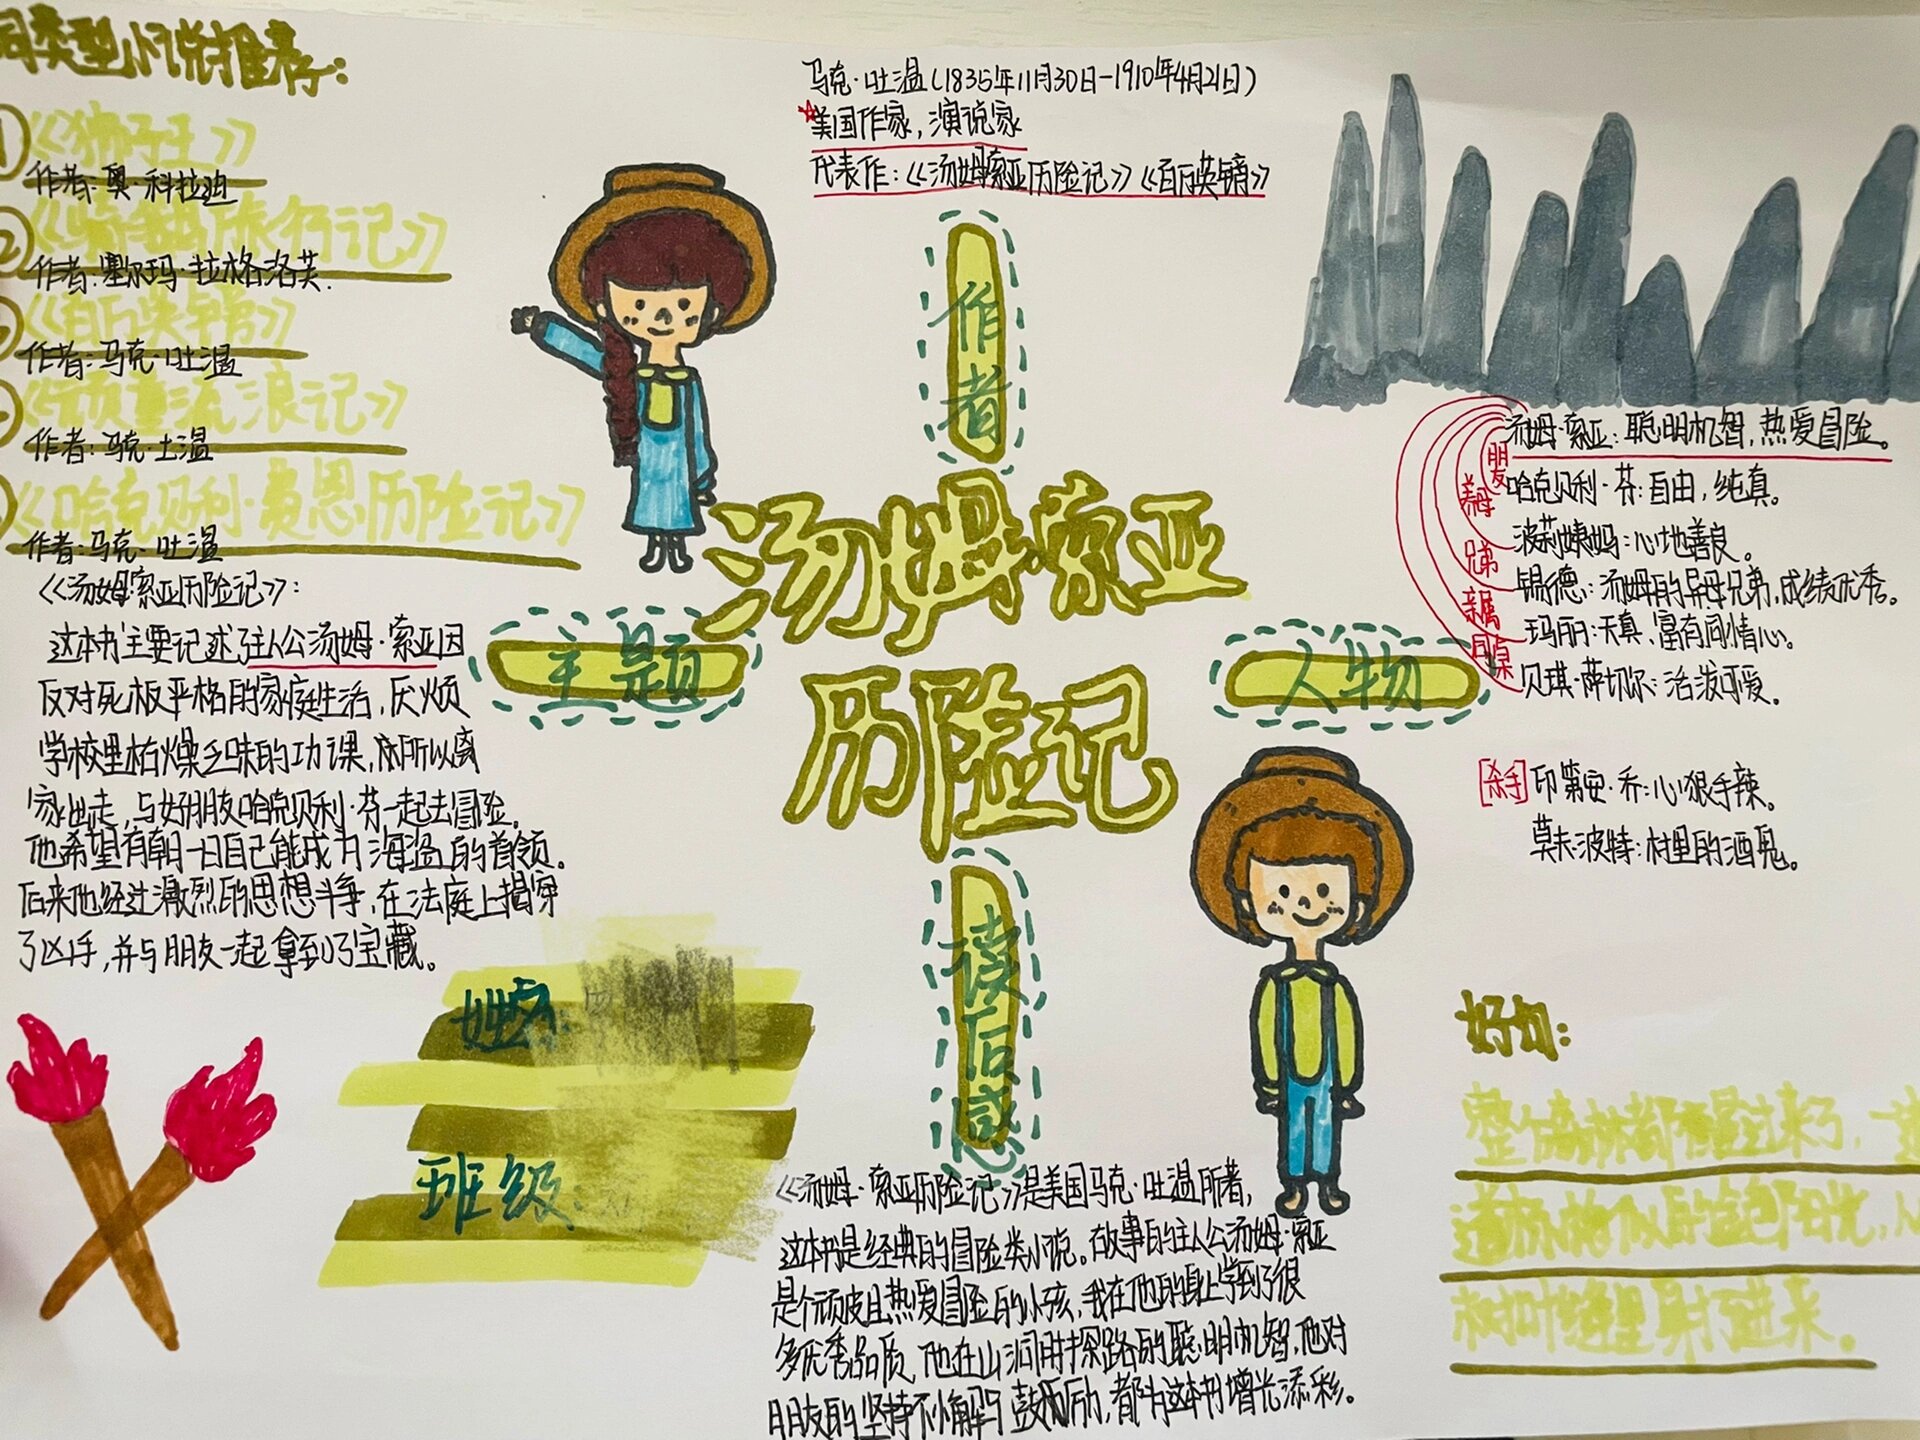 同类型小说推荐:
《狮子王》
作者:奥·科拉迪
《骑鹅旅行记》
作者:塞尔玛·拉格洛芙.
《百万英镑》
作者:马克·吐温
《顽童流浪记》
作者:马克·土温
《哈克贝利·费恩历险记》
作者:马克·吐温
《汤姆·索亚历险记》:
这本书主要记述了主人公汤姆·索亚因
反对死板严格的家庭生活,厌烦
学校里枯燥乏味的功课,所以离
家出走,与好朋友哈克贝利·芬一起去冒险。
他希望有朝一日自己能成为海盗的首领。
后来他经过激烈的思想斗争,在法庭上揭穿
了凶手,并与朋友一起拿到了宝藏。
姓名:
班级:
马克·吐温(1835年11月30日-1910年4月21日)
美国作家,演说家
代表作:《汤姆索亚历险记》《百万英镑》
作者
汤姆·索亚
历险记
主题
人物
读后感
汤姆·索亚:聪明机智,热爱冒险。
朋友
哈克贝利·芬:自由,纯真。
养母
波莉姨妈:心地善良。
兄弟
锡德:汤姆的异母兄弟,成绩优秀。
亲属
玛丽:天真,富有同情心。
同桌
贝琪·萨切尔:活泼可爱。
[杀手]印第安·乔:心狠手辣。
莫夫·波特:村里的酒鬼。
《汤姆·索亚历险记》是美国马克·吐温所著,
这本书是经典的冒险类小说。故事的主人公汤姆·索亚
是个顽皮且热爱冒险的小孩,我在他的身上学到了很
多优秀品质,他在山洞用探路的聪明机智,他对
朋友的坚持不懈与鼓励,都为这本书增光添彩。
好句:
整个森林都醒过来了,一道
道标枪似的金色阳光,从
树叶缝里射了进来。